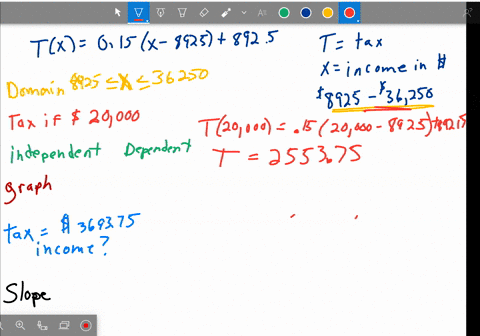 T(x) = 0.15(x-8925)+892.5
T = tax
x = income in $
$8925 - $36,250
Domain 8925 ≤ x ≤ 36250
Tax if $20,000
T(20,000) = .15(20,000-8925)+892.5
T = 2553.75
independent Dependent
graph
tax = $3693.75
income?
Slope